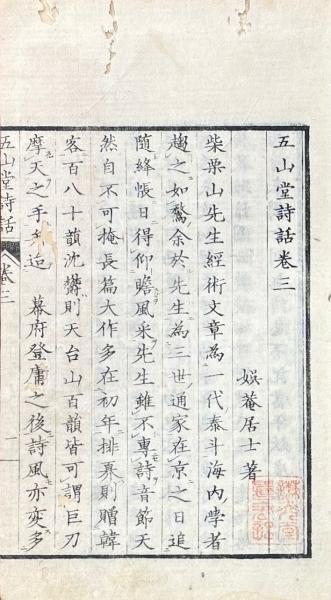 五山堂詩話卷三
娛菴居士著
柴栗山先生經術文章為一代泰斗海內學者
趨之如鶩余於先生為三世通家在京之日追
隨絳帳日得仰瞻風采先生雖不專詩音節天
然自不可掩長篇大作多在初年排奡則贈韓
客百八十韻沈鬱則天台山百韻皆可謂巨刃
摩天之手矣迨 幕府登庸之後詩風亦變多
五山堂詩話 卷三 一